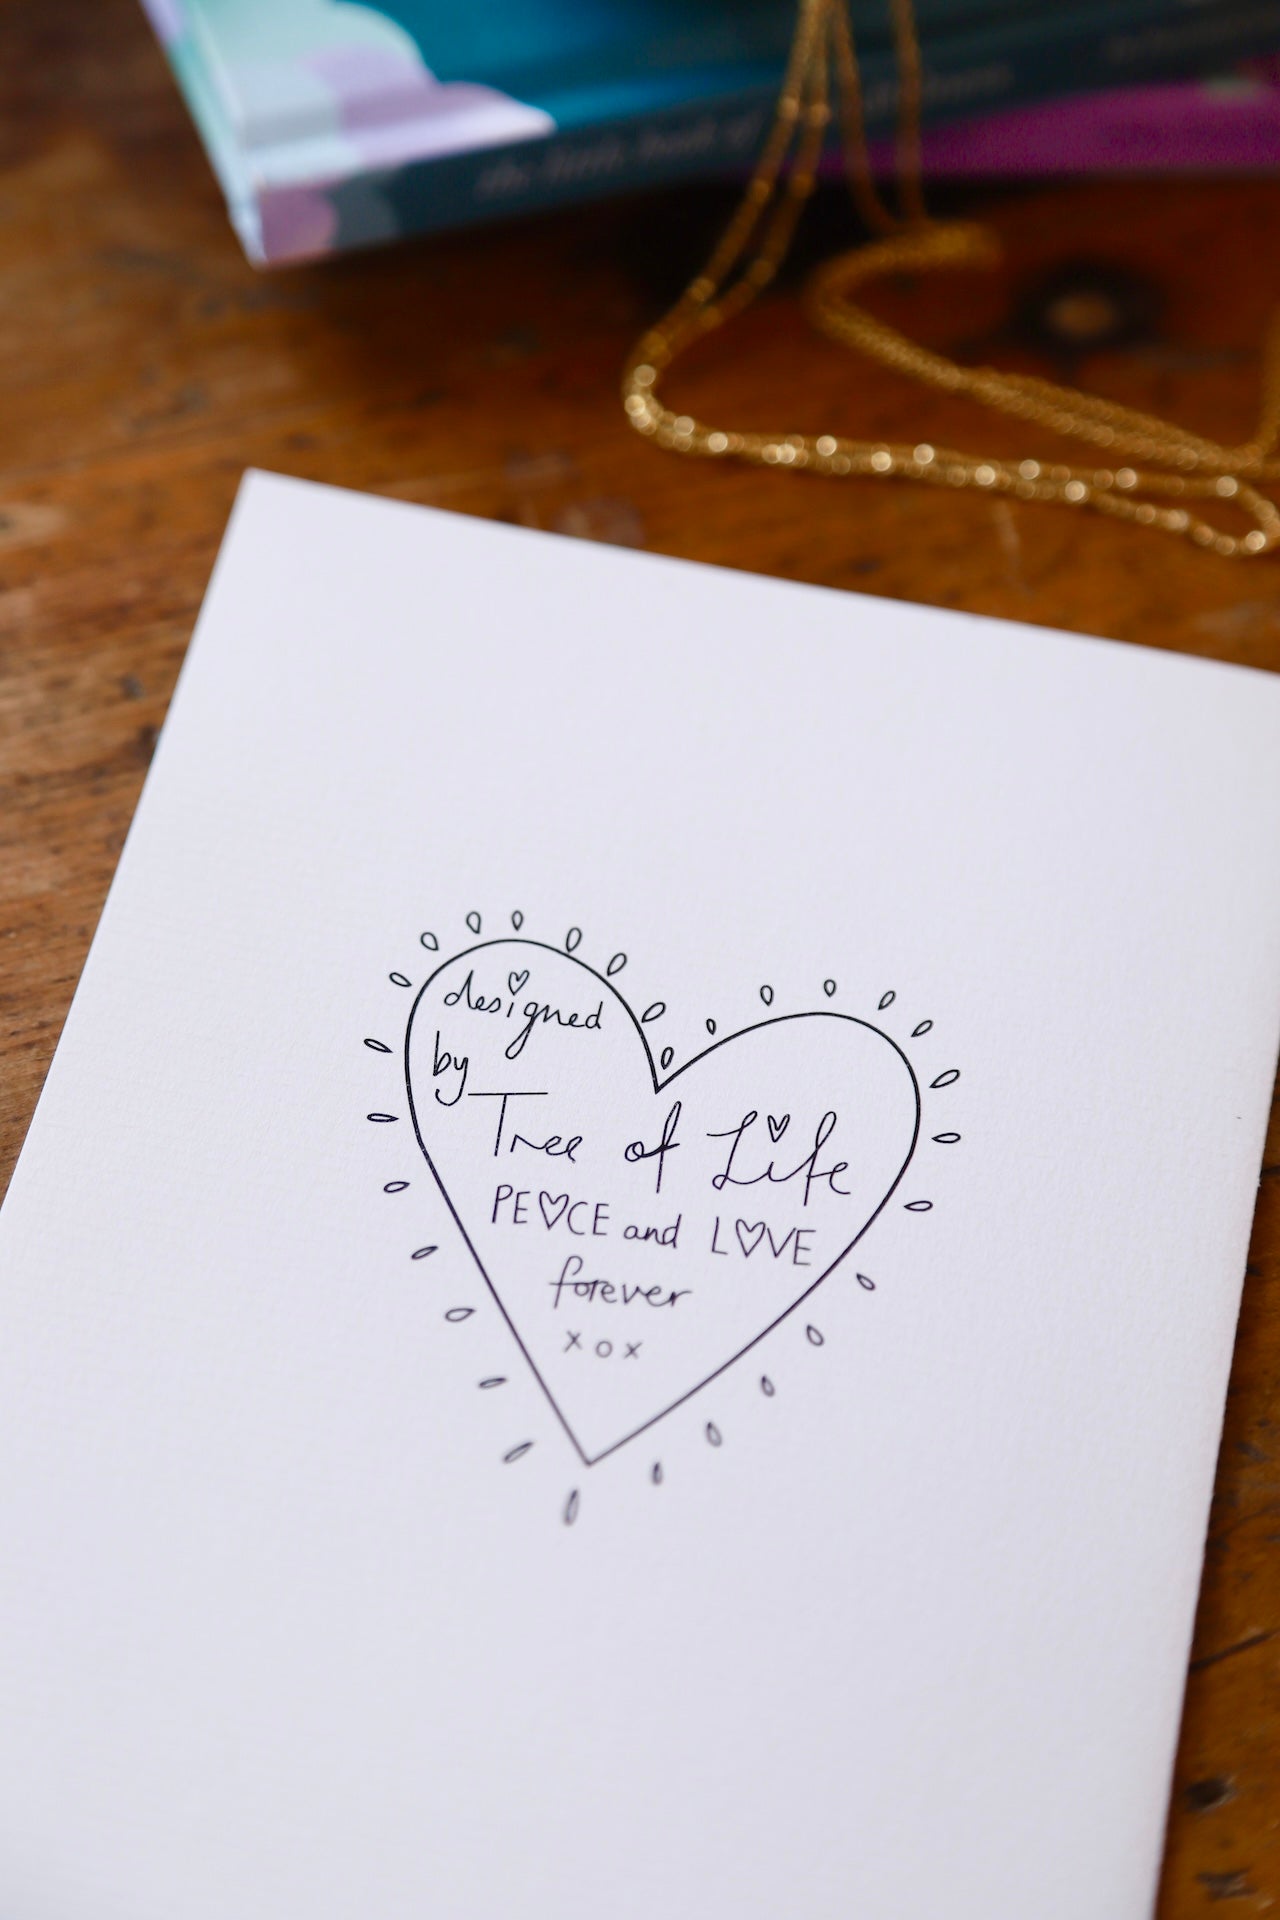 the little book of
designed
by
Tree of Life
PE♡CE and L♡VE
forever
x o x